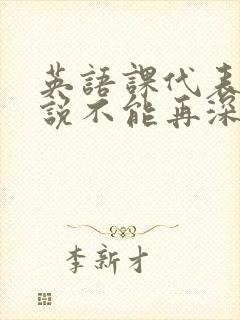 英語課代表
說不能再深
李新才